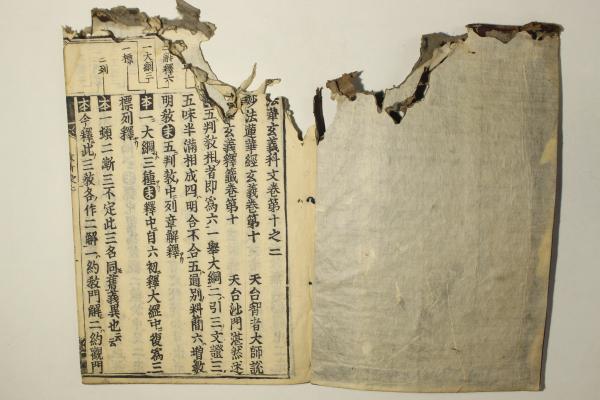 法華玄義科文卷第十之二
妙法蓮華經玄義卷第十 天台智者大師說
玄義釋籤卷第十 天台沙門湛然述
五判教相者即爲六一舉大綱二引三文證三
五味半滿相成四明合不合五通別料簡六增數
明教末五判教中列章解釋
本一大綱三種末釋中自六初釋大經中復爲三
標列釋
一大綱三
二解釋六
一標
二列
本一頓二漸三不定此三名同舊義異也云云
本今釋此三教各作二解一約教門解二約觀門